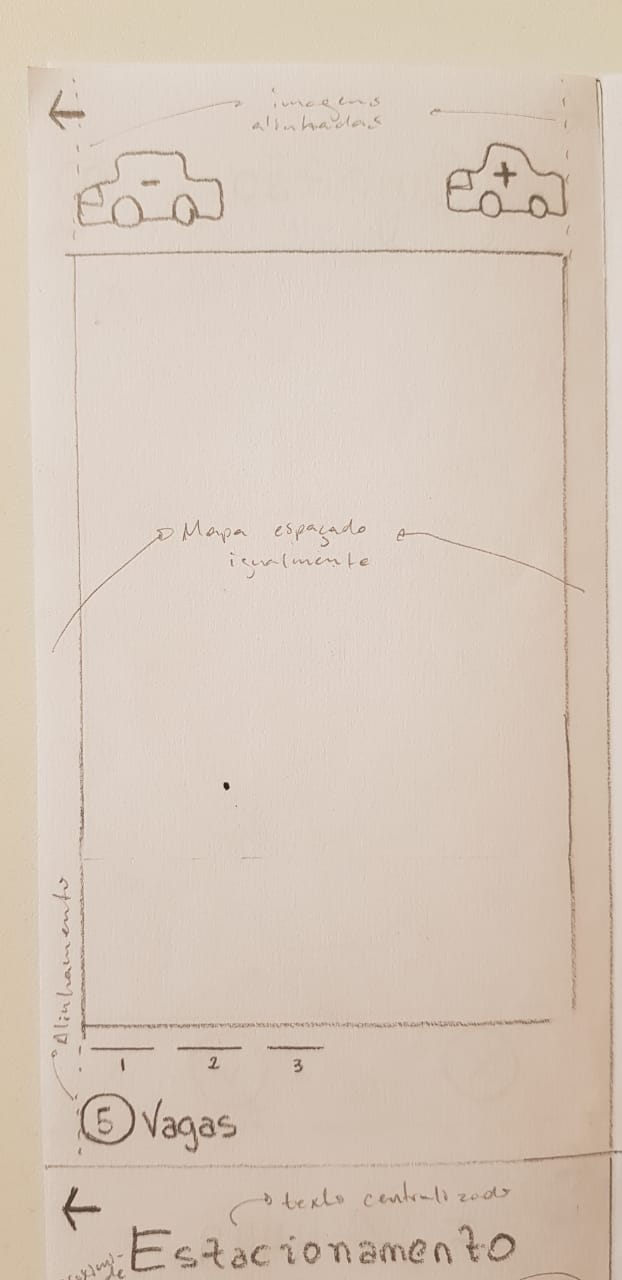 imagens
alinhadas
-
+
Mapa espaçado
igualmente
Alinhamento
1 2 3
5 Vagas
texto centralizado
Estacionamento